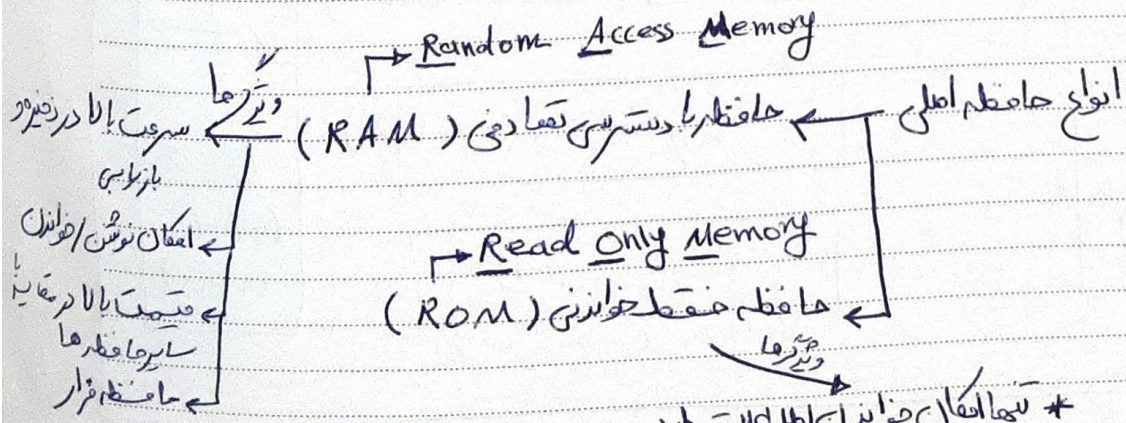 Random Access Memory
انواع حافظه اصلی
حافظه با دسترسی تصادفی (RAM)
ویژگی‌ها
سرعت بالا در ذخیره و
بازیابی
امکان نوشتن/خواندن
قیمت بالا در مقایسه با
سایر حافظه‌ها
حافظه فرار
Read Only Memory
حافظه فقط خواندنی (ROM)
ویژگی‌ها
* تنها امکان خواندن اطلاعات